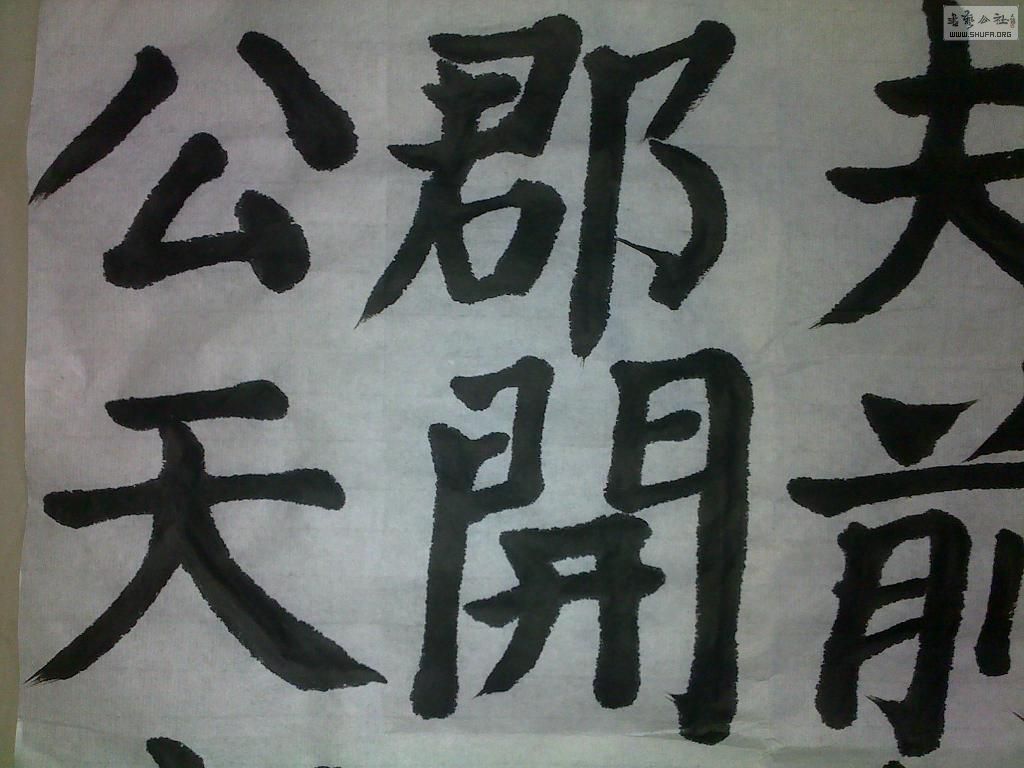 夫前
郡開
公天
書藝公社
WWW.SHUFA.ORG